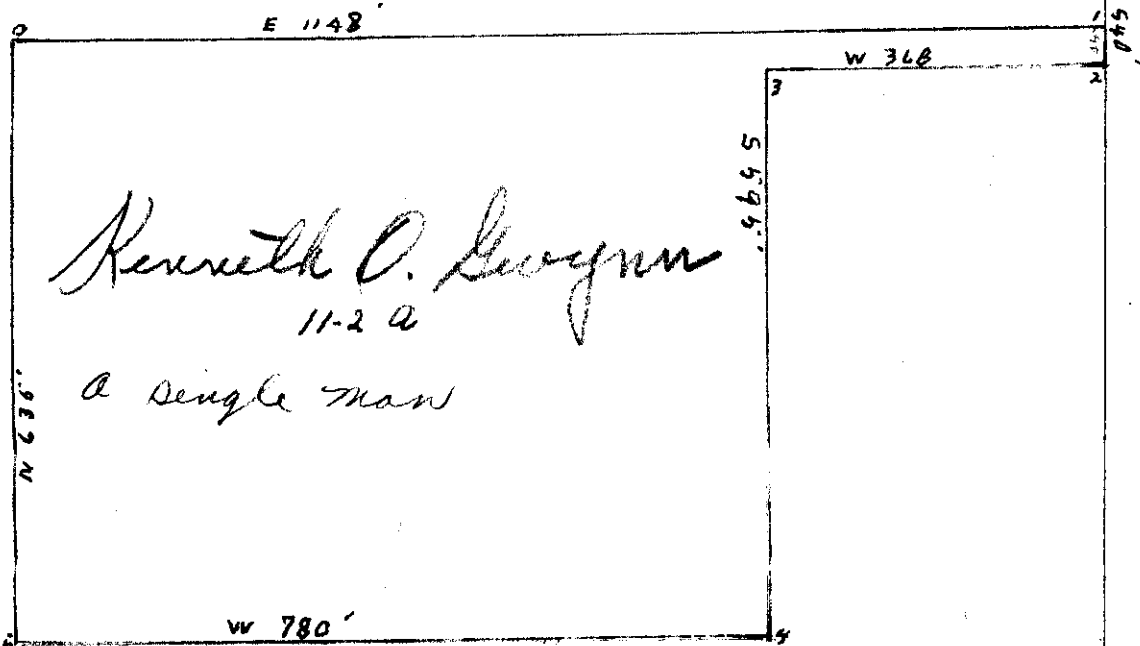 0
E 1148'
1
S 40'
W 368
3
2
S 595'
Kenneth O. Gwynn
11-2 a
a single man
N 636'
W 780'
4
5